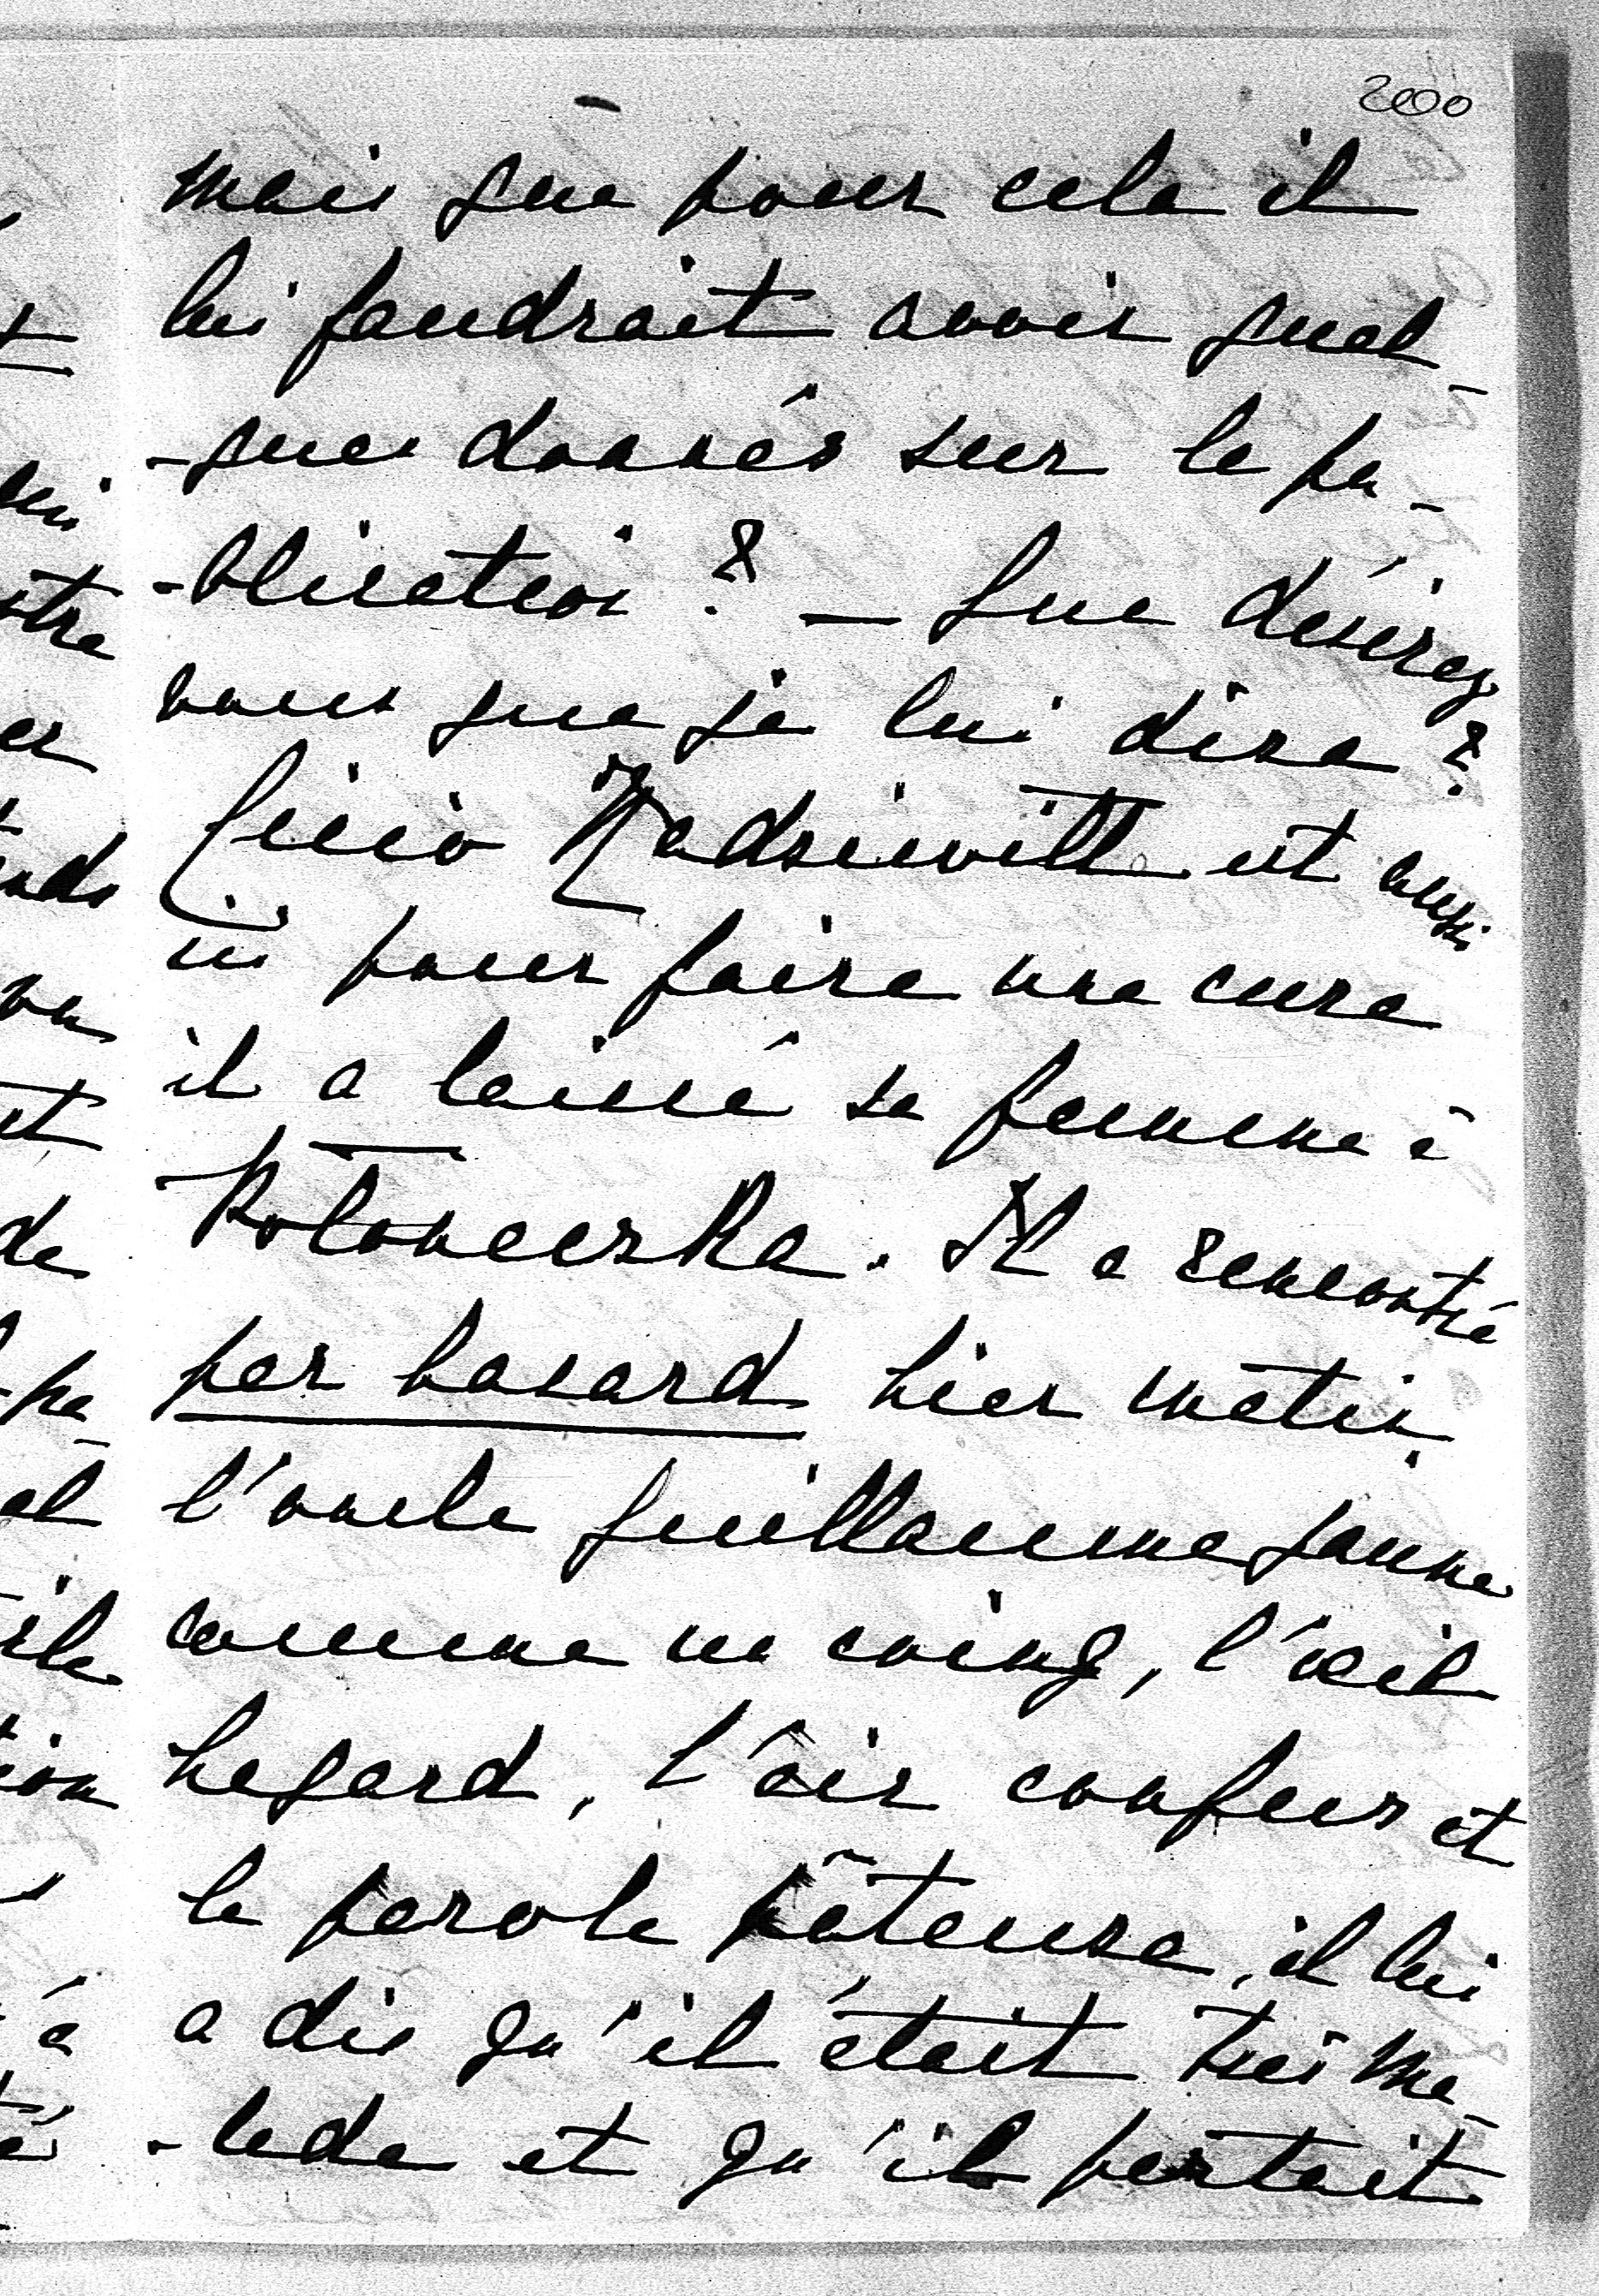 2000
mais que pour cela il
lui faudrait avoir quel-
-ques donnés sur la pu-
-blication ? — Que désirez
vous que je lui dise ?
Radziwill est aussi
ici pour faire une cure
il a laissé sa femme à
Poloneczka. Il a rencontré
par hasard hier matin
l'oncle Guillaume jaune
comme un coing, l'œil
hagard, l'air confus et
la parole pâteuse, il lui
a dis qu'il était très ma-
-lade et qu'il partait